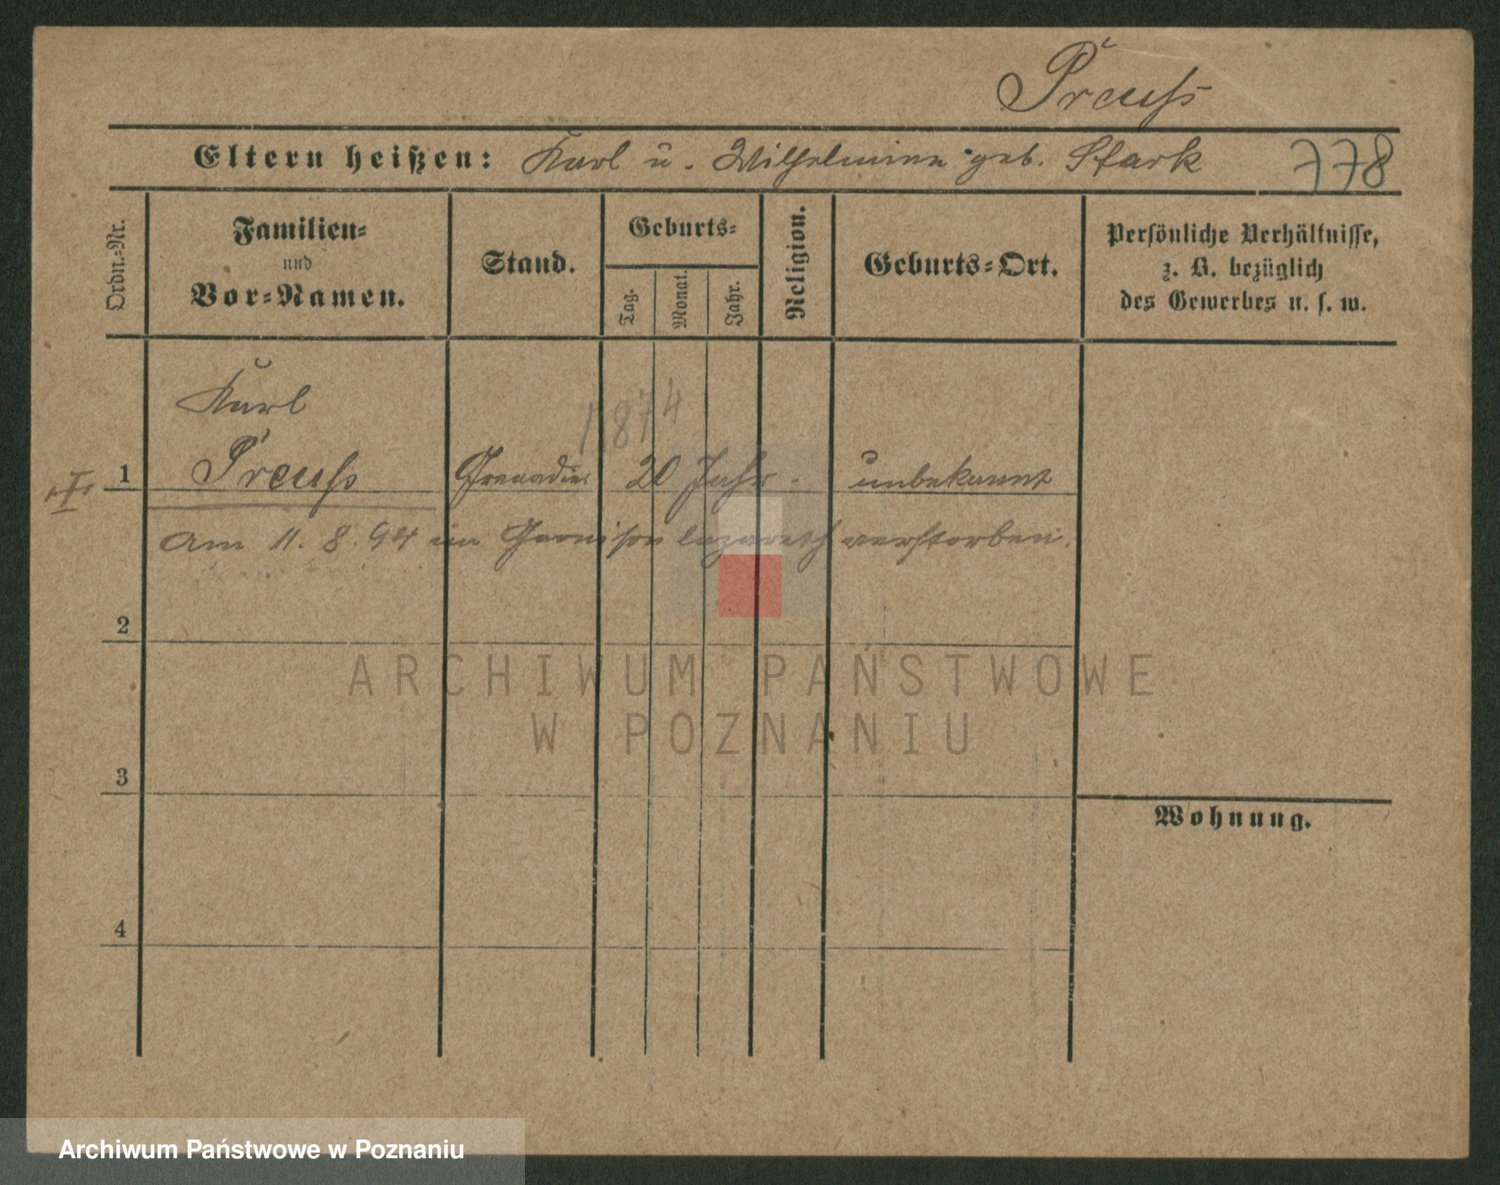 Preuß
Eltern heißen: Karl u. Wilhelmine geb. Stark 778
Ordn.-Nr.
Familien-
und
Vor-Namen.
Stand.
Geburts-
Tag.
Monat.
Jahr.
Religion.
Geburts-Ort.
Persönliche Verhältnisse,
z. B. bezüglich
des Gewerbes u. s. w.
Karl
1874
1 Preuß Grenadier 20 Jahr unbekannt
am 11. 8. 94 im Garnisonlazareth verstorben.
2
3
4
Wohnung.
ARCHIWUM PAŃSTWOWE
W POZNANIU
Archiwum Państwowe w Poznaniu